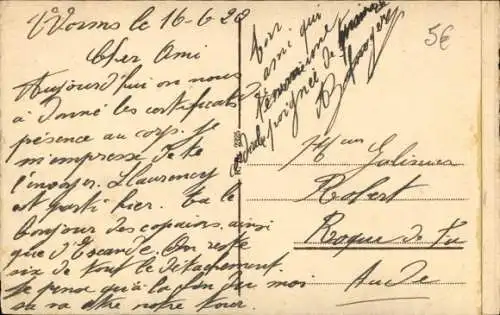 Worms le 16-6-20
Cher Ami
Aujourd'hui on nous
à donné les certificats
présence au corps. Je
m'empresse de te
l'envoyer. Llaurency
est parti hier. Ta le
bonjour des copains, ainsi
que d'Escande. On reste
six de tout le détachement.
Je pense qu'à la fin du moi
sa va etre notre tour.
Ton
ami qui
poignée de mains
5€
Robert
Roque de Fa
Aude